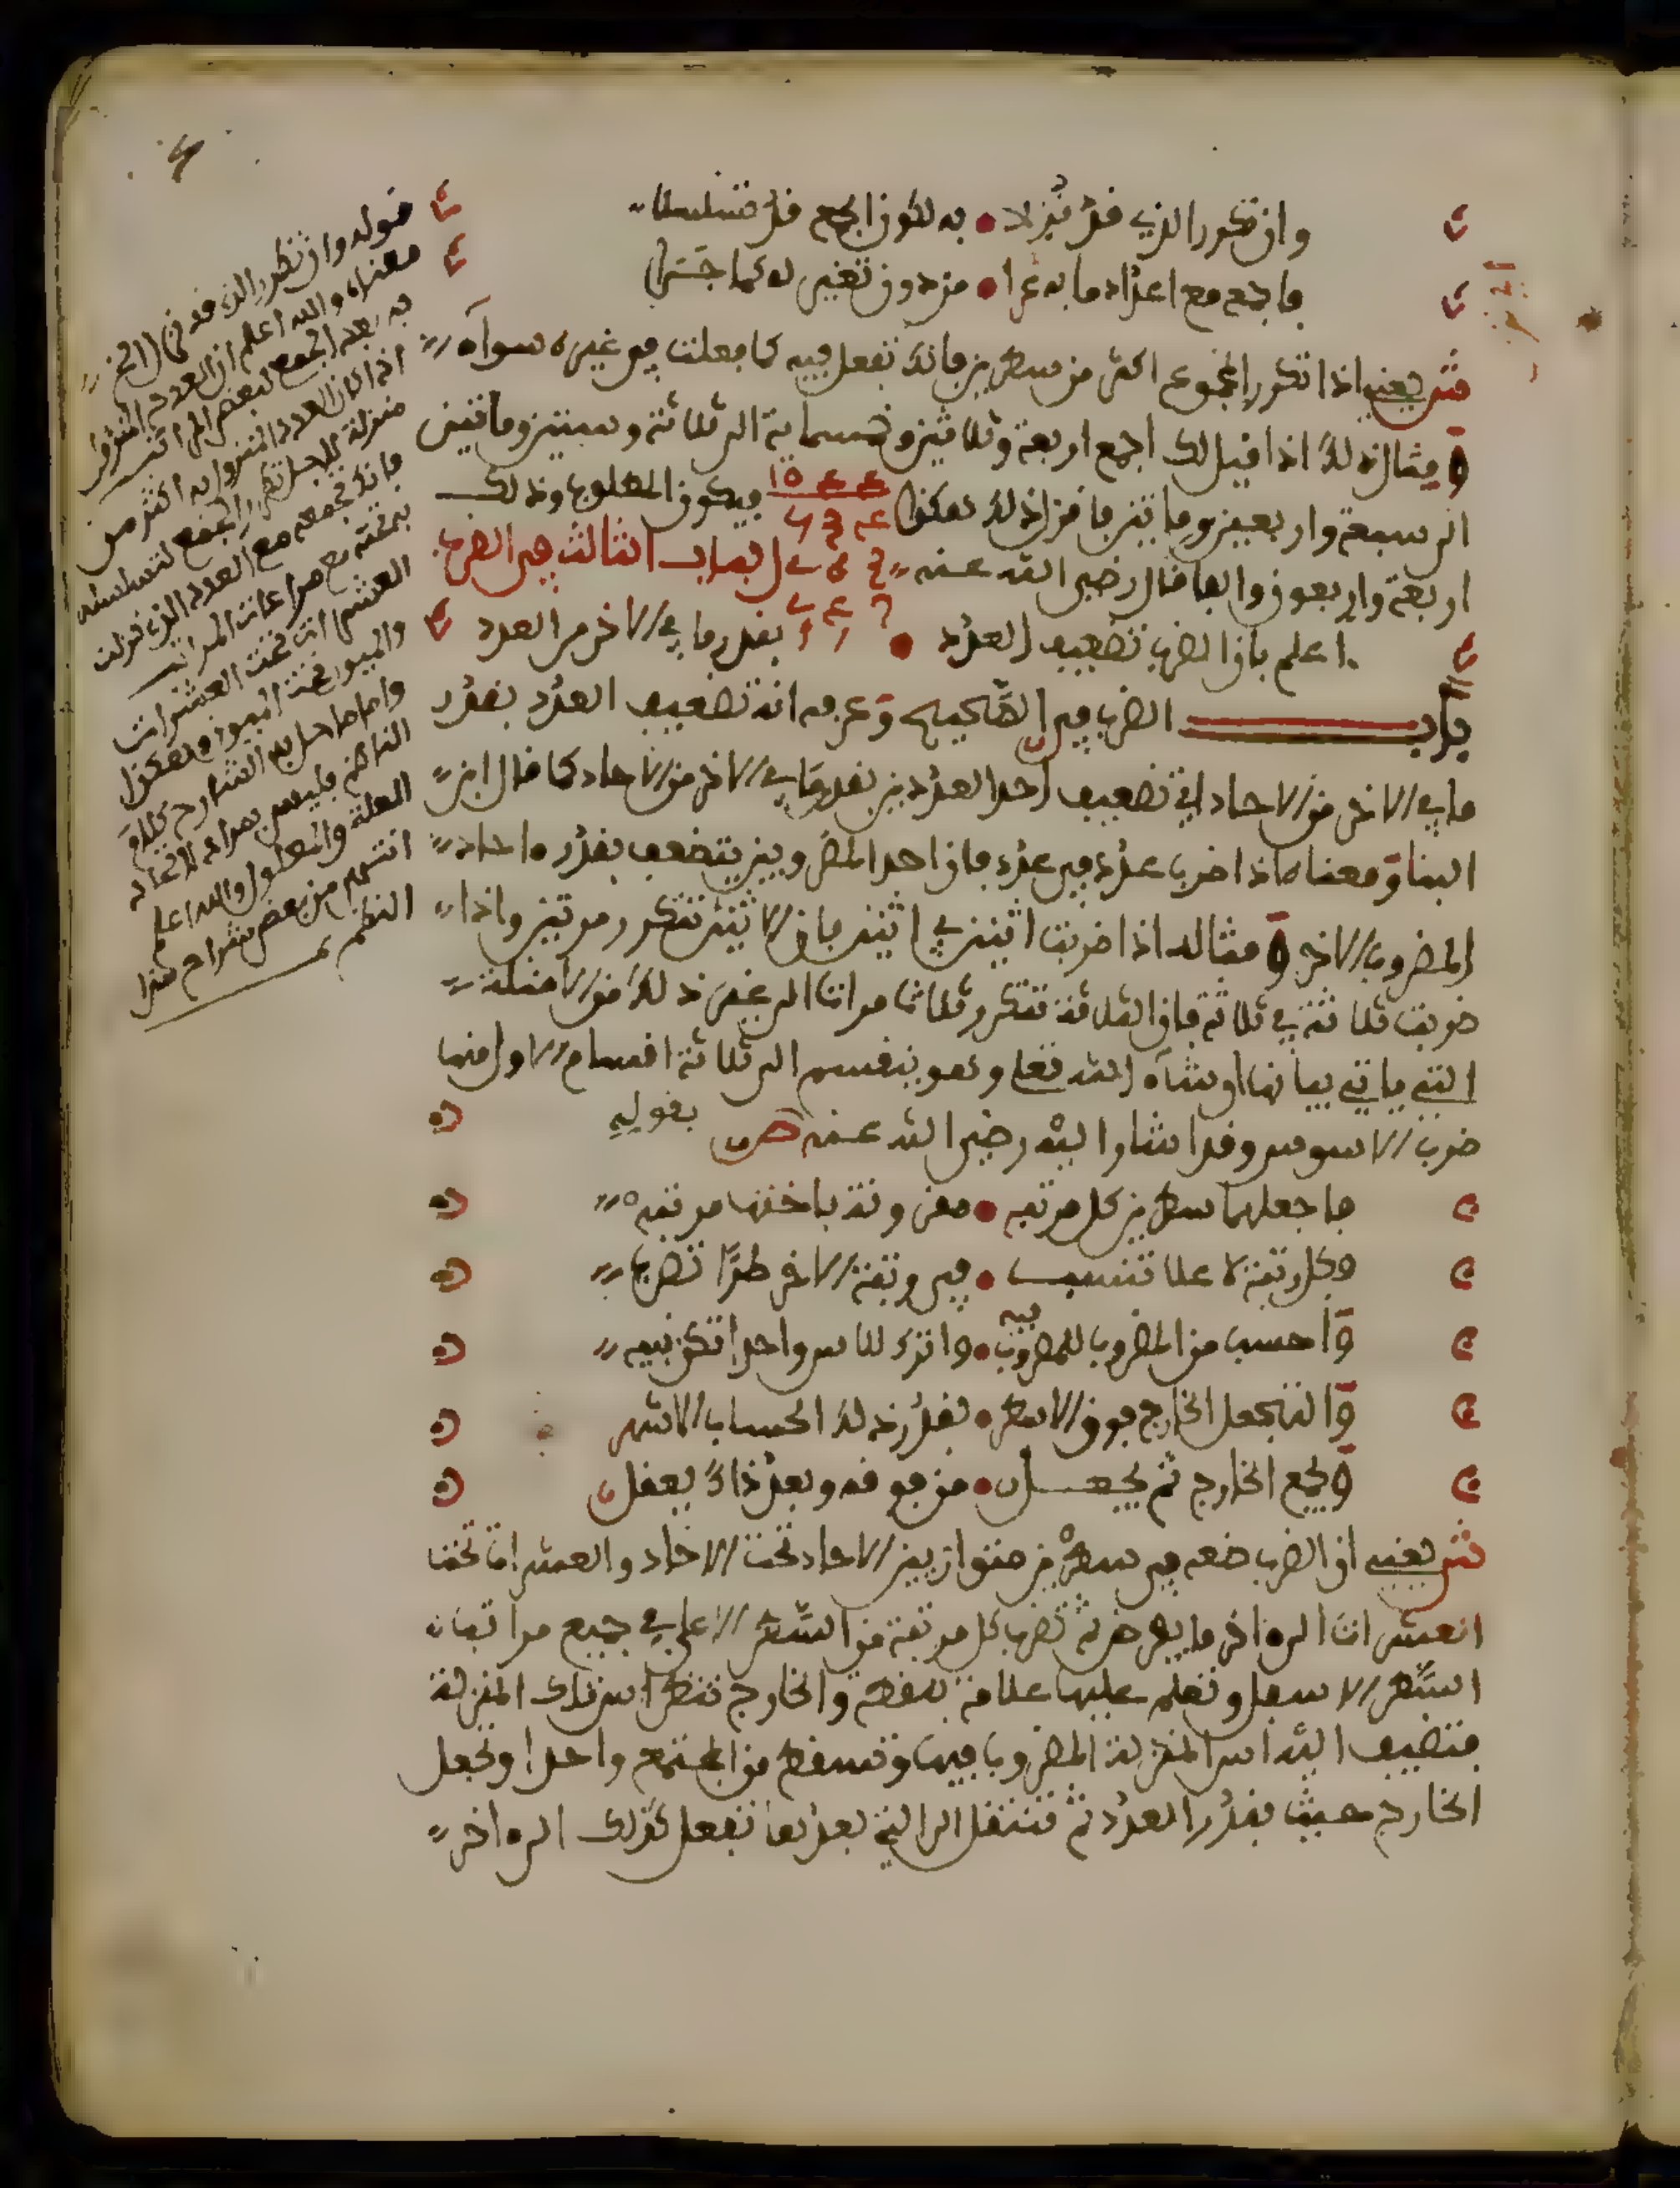 وان تكرر الذي قد نزلا • به لكون الجمع قد تسلسلا
فاجمع مع اعداد ما به غدا • من دون تغيير له كما جدا
ش يعني اذا تكرر المجموع اكثر من سطرين فانك تفعل فيه كما فعلت في غيره سواء
ومثال ذلك اذا قيل لك اجمع اربعة وثلاثين وخمسماية الى ثلاثة وستين وماتين
الى سبعة واربعين وماتين فانزل ذلك هكذا فيكون المطلوب وذلك
اربعة واربعون والفا قال رضي الله عنه الباب الثالث في الضرب
اعلم بان الضرب تضعيف العدد • بقدر ما في الاخر من العدد
باب الضرب في الصحيح وعرفه انه تضعيف العدد بقدر
ما في الاخر من الاحاد اي تضعيف احد العددين بقدر ما في الاخر من الاحاد كما قال ابن
البنا ومعناه اذا ضرب عدد في عدد فان احد المضروبين يتضعف بقدر ءاحاد
المضروب الاخر ومثاله اذا ضربت اثنين في اثنين فان الاثنين تتكرر مرتين واذا
ضربت ثلاثة في ثلاثة فان الثلاثة تتكرر ثلاث مرات الى غير ذلك من الامثلة
التي ياتي بيانها ان شاء الله تعلى وهو ينقسم الى ثلاثة اقسام الاول منها
ضرب الاسوس وقد اشار اليه رضي الله عنه بقوله ص
فاجعلهما سطرين كل مرتبه • مقرونة باختها مرتبه
وكل رتبة لاعلا تنسب • في رتبة الاخر طرا تضرب
واحسب من المضروب للمضروب فيه • واترك للاس واحدا تكن نبيه
والتجعل الخارج فوق الاسطر • بقدر ذلك الحساب الاشهر
ويجمع الخارج ثم يجعل • من فوقه وبعد ذاك يعقل
ش يعني ان الضرب ضعه في سطرين متوازيين الاحاد تحت الاحاد والعشرات تحت
العشرات الى ءاخر ما يعرض ثم تضرب كل مرتبة من السطر الاعلى في جميع مراتب
السطر الاسفل وتعلم عليها علامة بنقط والخارج تنظر اس تلك المنزلة
فتضيف اليه اس المنزلة المضروب فيها وتسقط من المجتمع واحدا وتجعل
الخارج حيث بقدر العدد ثم تنتقل الى التي بعدها تفعل كذلك الى ءاخر
قوله وان تكرر الذي قد نزلا الخ
معناه والله اعلم ان العدد المنزول
به بعد الجمع
اذا كان العدد المنزول به اكثر من
منزلة لاجل تكرر الجمع لتسلسله
فانك تجمعه مع العدد الذي نزلت
بتحته مع مراعات المراتب
العشرات تحت العشرات
والميون تحت الميون وهكذا
واما ما حل به الشارح كلام
الناظم فليس بمراد لاتحاد
العلة والمعلول والله اعلم
انتهى من بعض شراح هذا
النظم